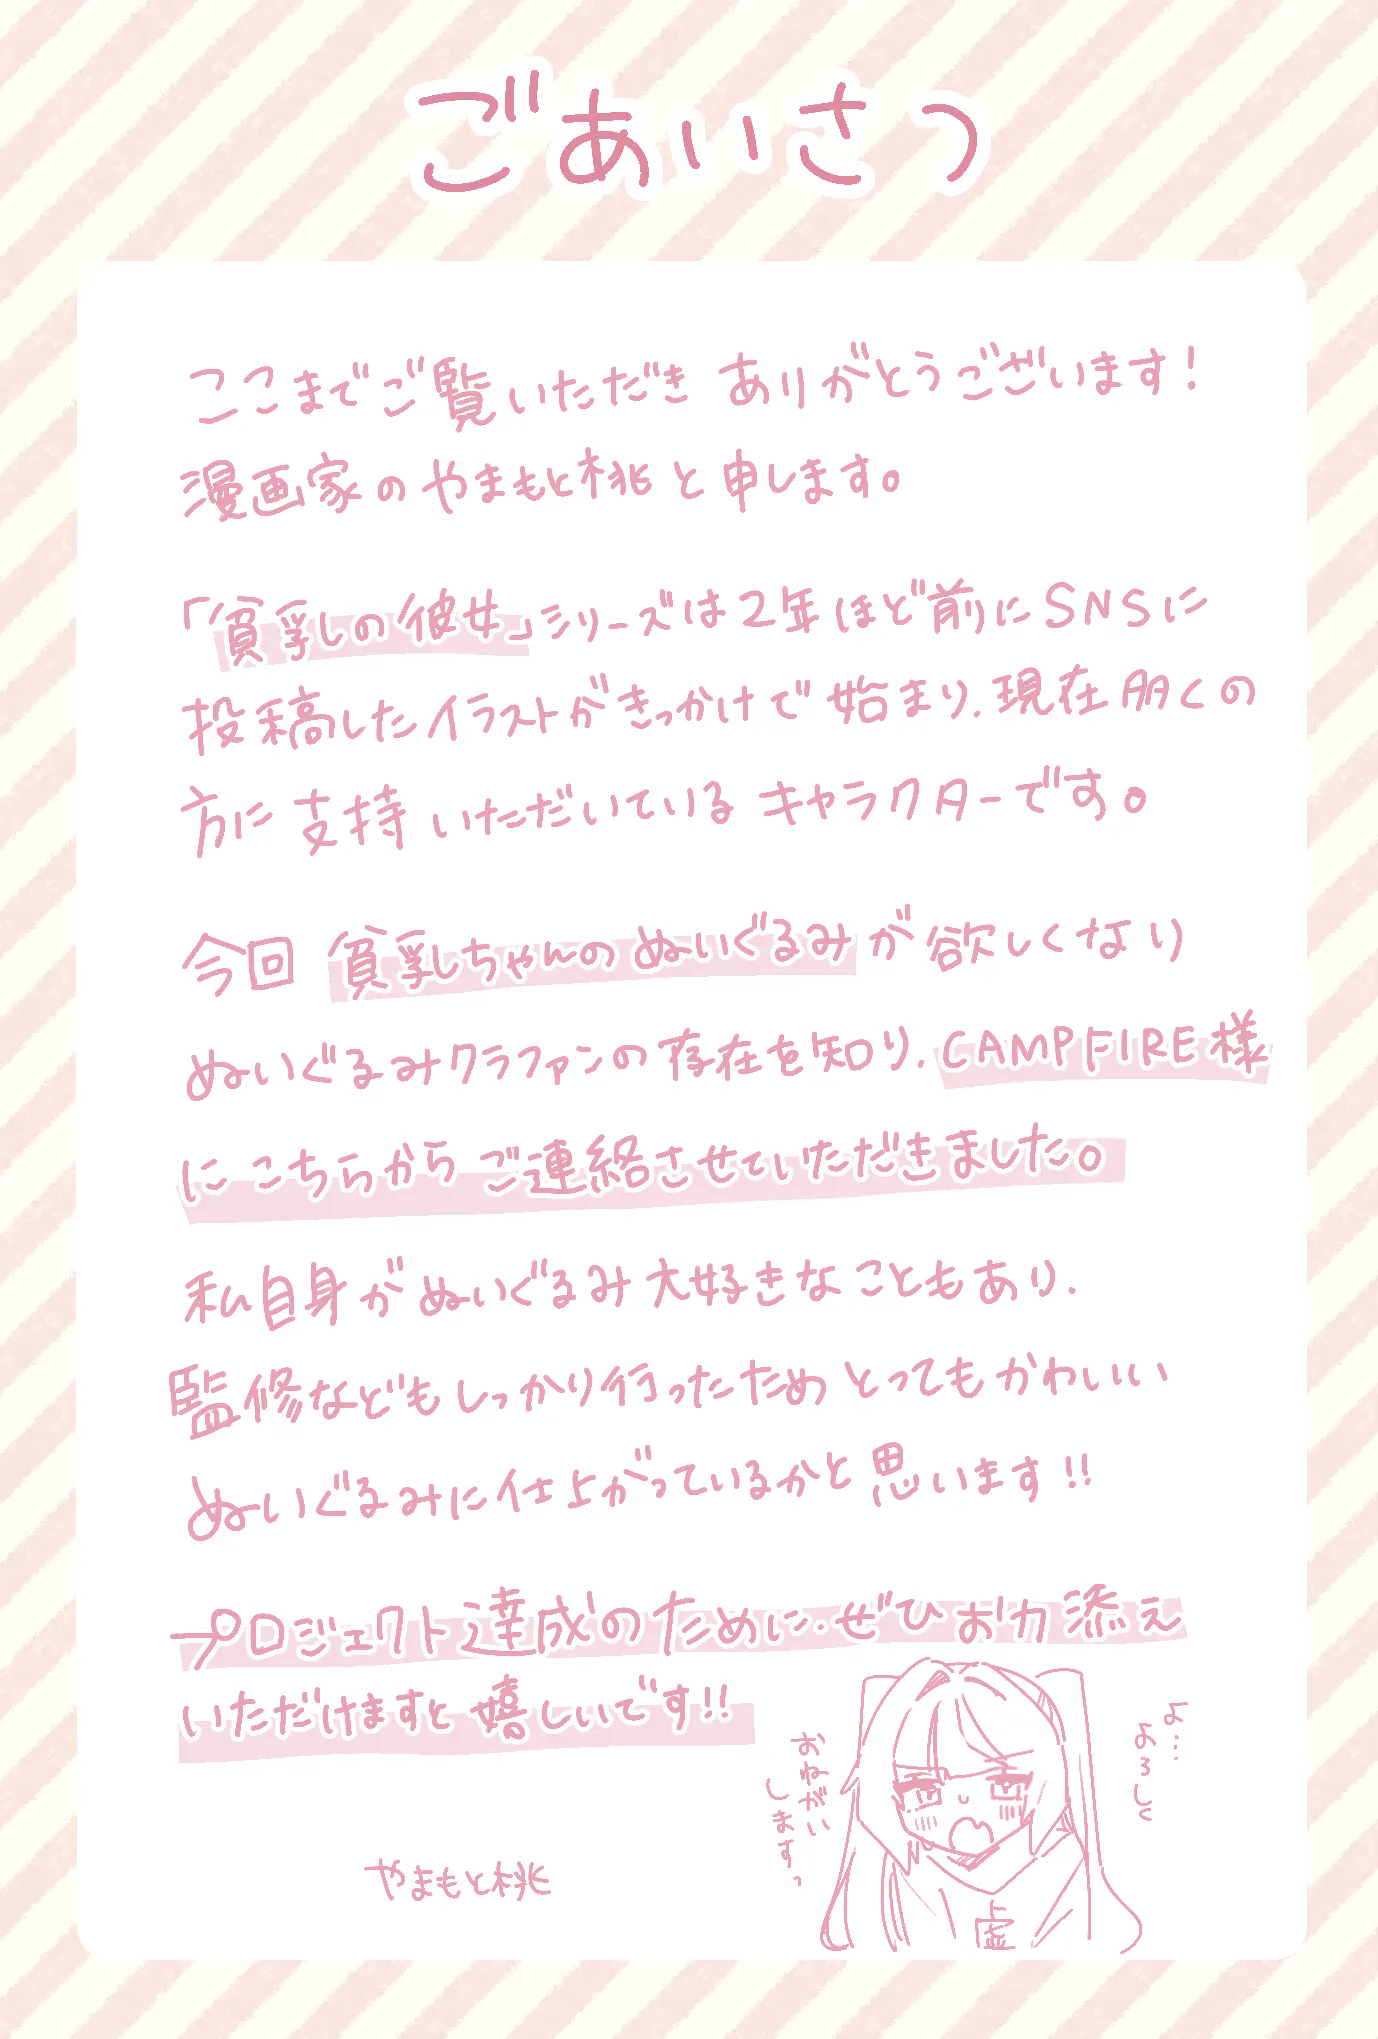 ごあいさつ
ここまでご覧いただき ありがとうございます!
漫画家のやまもと桃と申します。
「貧乳しの彼女」シリーズは2年ほど前にSNSに
投稿したイラストがきっかけで始まり、現在多くの
方に支持いただいているキャラクターです。
今回 貧乳しちゃんのぬいぐるみが欲しくなり
ぬいぐるみクラファンの存在を知り、CAMPFIRE様
にこちらからご連絡させていただきました。
私自身がぬいぐるみ大好きなこともあり、
監修などもしっかり行ったためとってもかわいい
ぬいぐるみに仕上がっているかと思います!!
プロジェクト達成のために、ぜひお力添え
いただけますと嬉しいです!!
よ…
よろしく
おねがい
しますっ
やまもと桃
虚